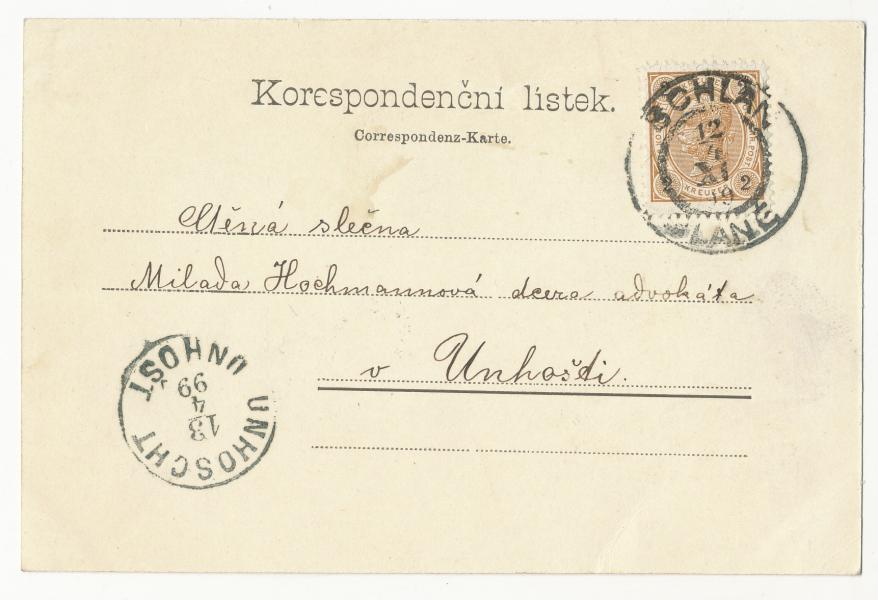 Korespondenční lístek.
Correspondenz-Karte.
SCHLAN
12
4
XI
KREUZER 2
SLANÉ
slečna
Milada Hochmannová dcera advokáta
v Unhošti.
UNHOŠT
99
4
13
UNHOSCHT